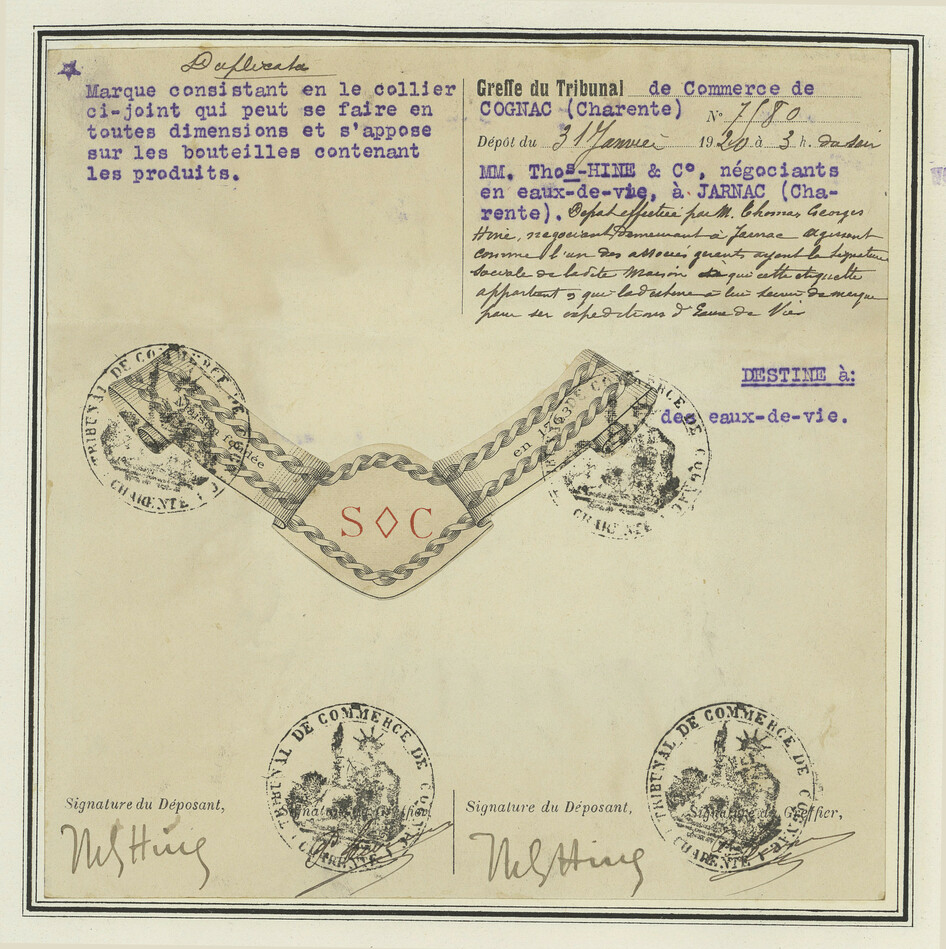 Duplicata
Marque consistant en le collier
ci-joint qui peut se faire en
toutes dimensions et s'appose
sur les bouteilles contenant
les produits.
Greffe du Tribunal de Commerce de
COGNAC (Charente) N° 7580
Dépôt du 31 Janvier 1920 à 3 h. du soir
MM. Thos-HINE & C°, négociants
en eaux-de-vie, à JARNAC (Cha-
rente). Dépôt effectué par M. Thomas Georges
Hine, négociant demeurant à Jarnac agissant
comme l'un des associés gérants ayant la signature
sociale de la dite Maison que cette étiquette
appartient & qui la destine à lui servir de marque
pour ses expéditions d'Eaux de Vie
DESTINE à:
des eaux-de-vie.
TRIBUNAL DE COMMERCE DE COGNAC
CHARENTE
Maison fondée
en 1763
TRIBUNAL DE COMMERCE DE COGNAC
CHARENTE
S◊C
TRIBUNAL DE COMMERCE DE COGNAC
CHARENTE
TRIBUNAL DE COMMERCE DE COGNAC
CHARENTE
Signature du Déposant,
Signature du Greffier,
Signature du Déposant,
Signature du Greffier,